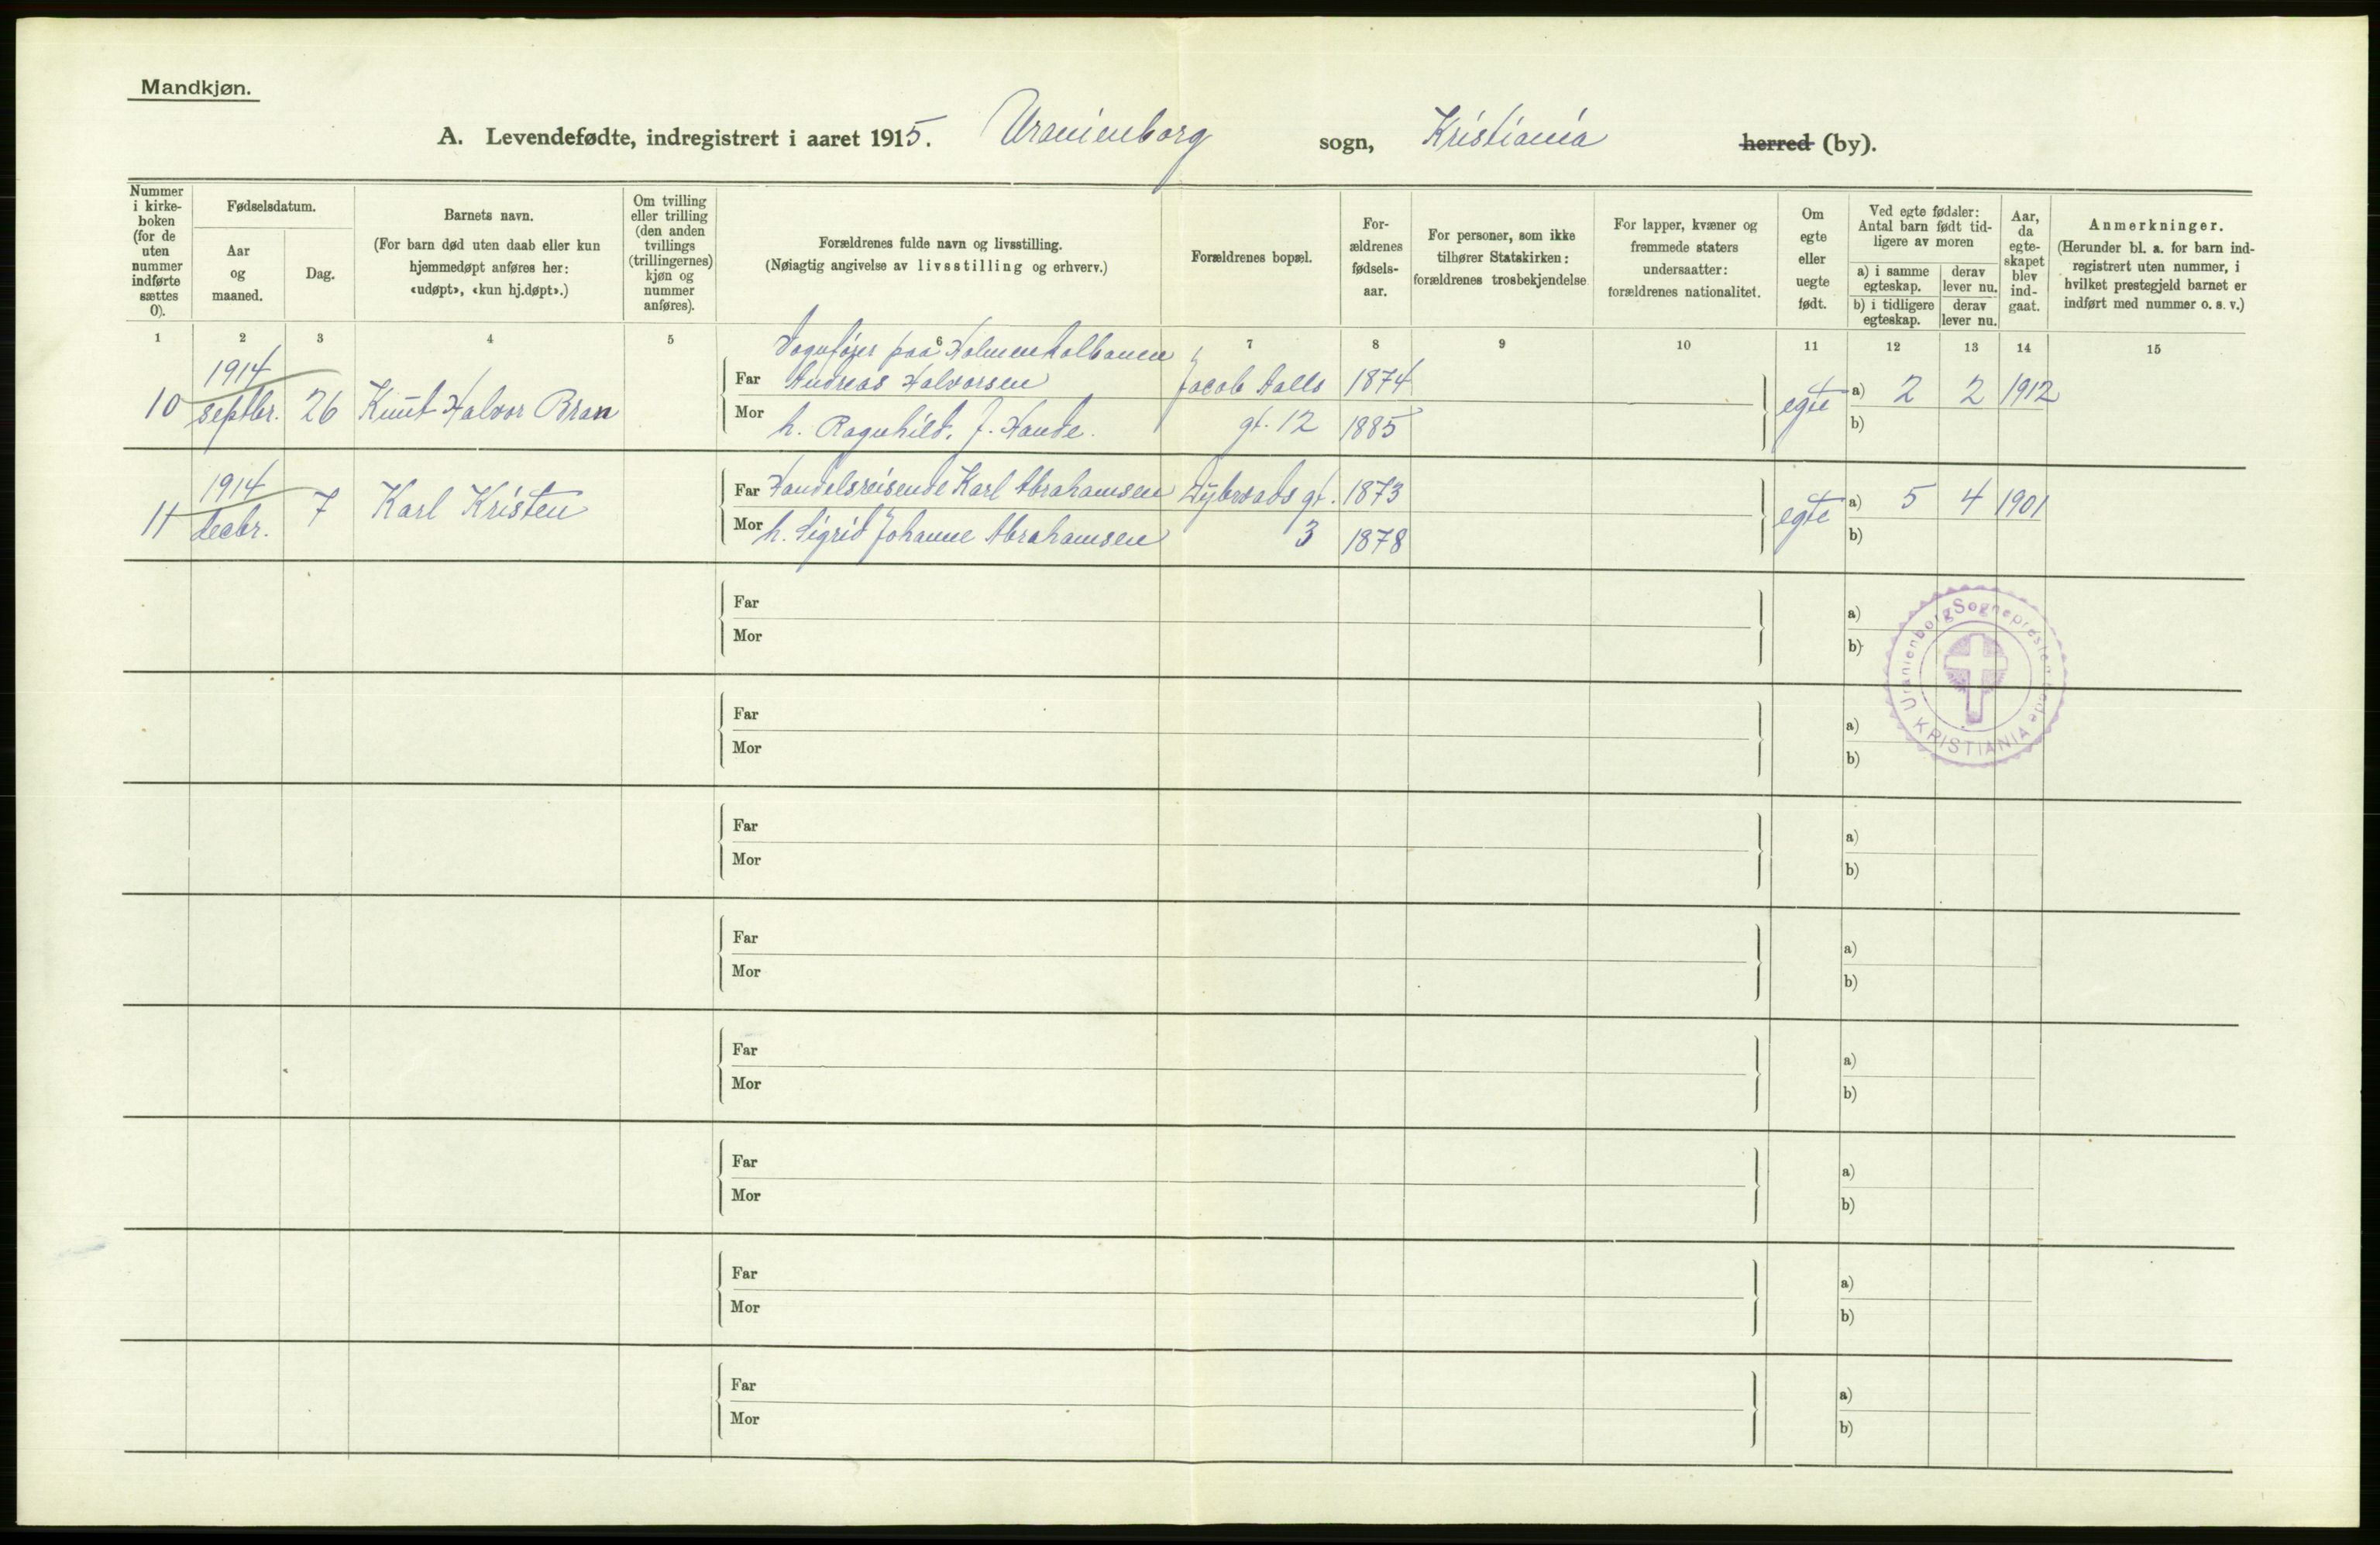 Mandkjøn.
A. Levendefødte, indregistrert i aaret 1915. Uranienborg sogn, Kristiania herred (by).
Nummer i kirke-boken (for de uten nummer indførte sættes 0).
Fødselsdatum.
Aar og maaned.
Dag.
Barnets navn.
(For barn død uten daab eller kun hjemmedøpt anføres her: «udøpt», «kun hj.døpt».)
Om tvilling eller trilling (den anden tvillings (trillingernes) kjøn og nummer anføres).
Forældrenes fulde navn og livsstilling.
(Nøiagtig angivelse av livsstilling og erhverv.)
Forældrenes bopæl.
For-ældrenes fødsels-aar.
For personer, som ikke tilhører Statskirken: forældrenes trosbekjendelse
For lapper, kvæner og fremmede staters undersaatter: forældrenes nationalitet.
Om egte eller uegte født.
Ved egte fødsler: Antal barn født tid-ligere av moren
a) i samme egteskap.
derav lever nu.
b) i tidligere egteskap.
derav lever nu.
Aar, da egte-skapet blev ind-gaat.
Anmerkninger.
(Herunder bl. a. for barn ind-registrert uten nummer, i hvilket prestegjeld barnet er indført med nummer o. s. v.)
1 2 3 4 5 6 7 8 9 10 11 12 13 14 15
Vognfører paa Holmenkolbanen
1914 Far Andreas Halvorsen Jacob Aalls 1874
10 septbr. 26 Knut Halvor Bran egte a) 2 2 1912
Mor h. Ragnhild, f. Hande. gt. 12 1885 b)
1914 Far Handelsreisende Karl Abrahamsen Dybwads gt. 1873
11 decbr. 7 Karl Kristen egte a) 5 4 1901
Mor h. Sigrid Johanne Abrahamsen 3 1878 b)
Far a)
Mor b)
Uranienborg Sogneprestembede
KRISTIANIA
Far a)
Mor b)
Far a)
Mor b)
Far a)
Mor b)
Far a)
Mor b)
Far a)
Mor b)
Far a)
Mor b)
Far a)
Mor b)